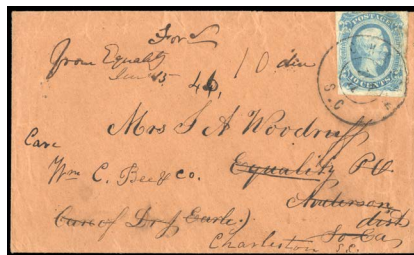 For
from Equality
Jan 15
10 due
POSTAGE
S.C
Mrs S A Woodruff
Care
Wm C. Bee & co.
Equality P.O.
Anderson
dist
(Care of Dr J. Earle.)
So Ca
Charleston
S.C.